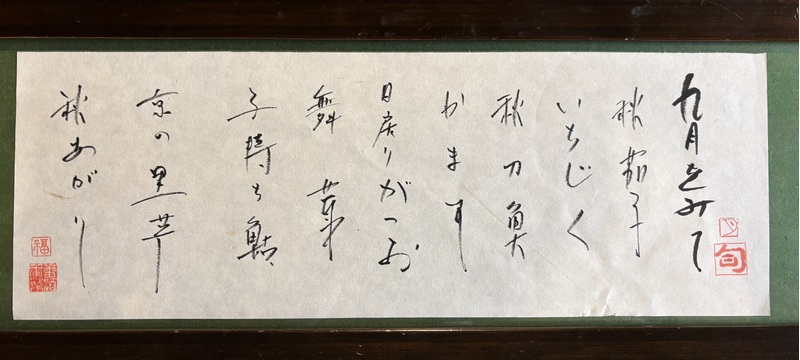 九月をみて
秋茄子
いちじく
秋刀魚
かます
戻りがつお
舞茸
子持ち鮎
京の里芋
秋あがり
旬
福